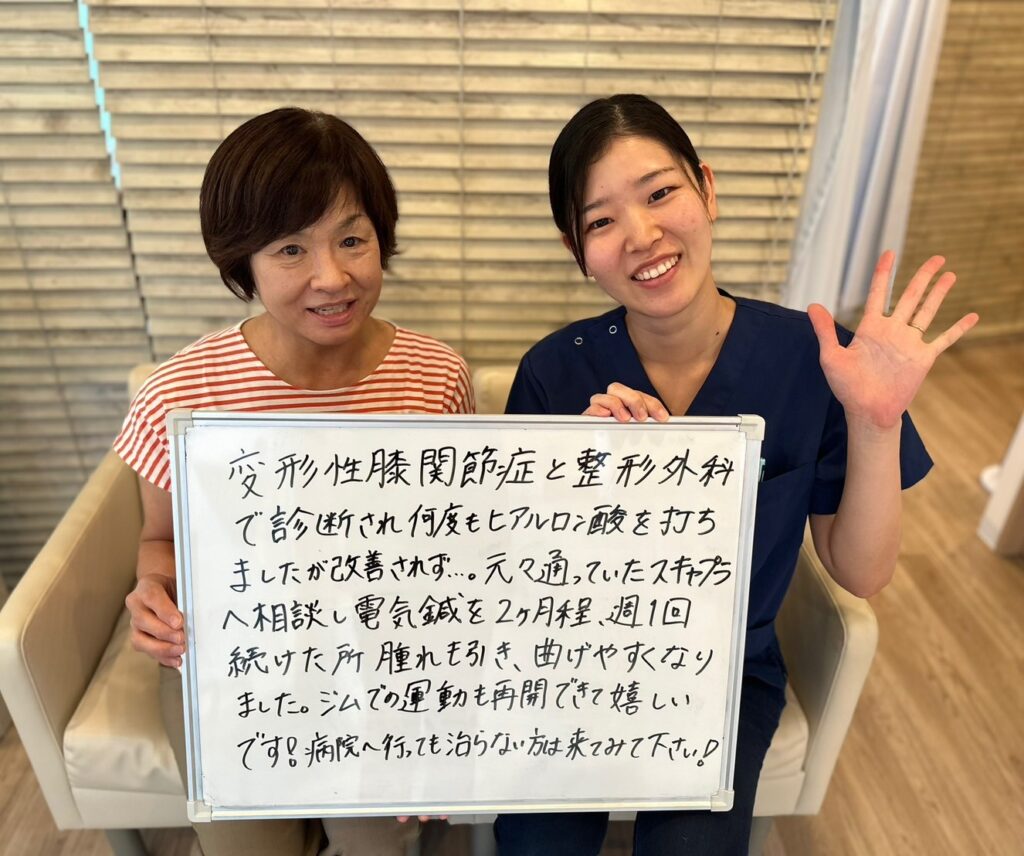 変形性膝関節症と整形外科
で診断され何度もヒアルロン酸を打ち
ましたが改善されず…。元々通っていたスキャプラ
へ相談し電気鍼を2ヶ月程、週1回
続けた所腫れも引き、曲げやすくなり
ました。ジムでの運動も再開できて嬉しい
です!病院へ行っても治らない方は来てみて下さい!